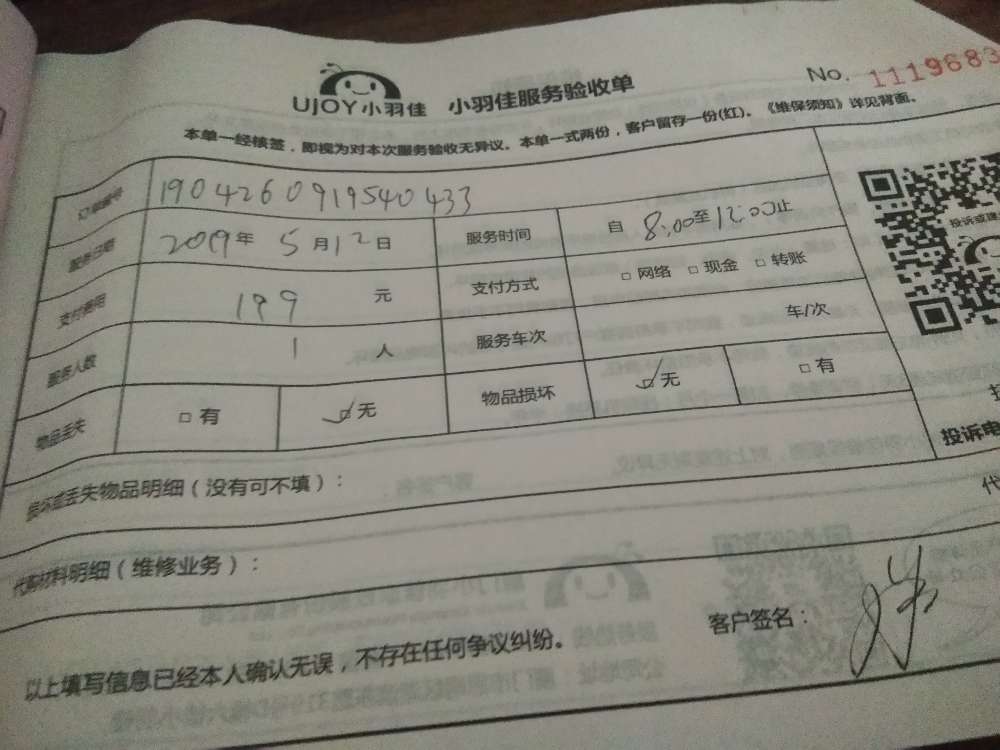 UJOY小羽佳 小羽佳服务验收单 No. 1119683
本单一经核签，即视为对本次服务验收无异议。本单一式两份，客户留存一份(红)。《维保须知》详见背面。
订单编号 1904260919540433
服务日期 2019年 5月12日 服务时间 自 8:00至12:00止
支付费用 199 元 支付方式 □网络 □现金 □转账
服务人数 1 人 服务车次 车/次
物品丢失 □有 ☑无 物品损坏 ☑无 □有
损坏或丢失物品明细（没有可不填）：
代购材料明细（维修业务）：
以上填写信息已经本人确认无误，不存在任何争议纠纷。 客户签名：
投诉电
代